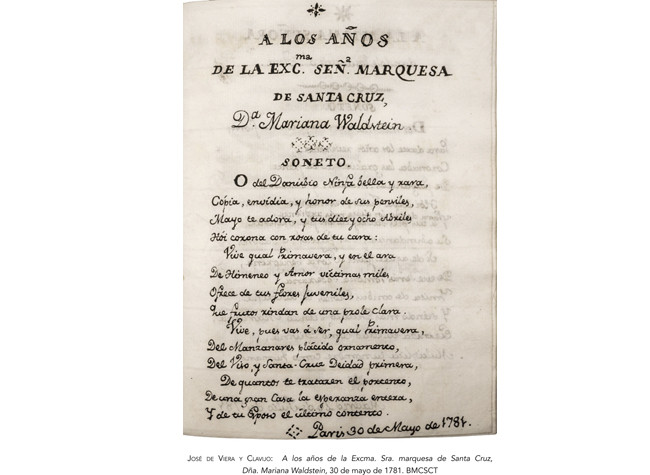 A LOS AÑOS
DE LA EXC.ma SEÑ.a MARQUESA
DE SANTA CRUZ,
D.a Mariana Waldstein.
SONETO.
O del Danubio Ninfa bella y rara,
Copia, envidia, y honor de sus pensiles,
Mayo te adora, y tus diez y ocho Abriles
Hoi corona con rosas de tu cara:
Vive qual Primavera, y en el ara
De Himeneo y Amor victimas miles
Ofrece de tus flores juveniles,
Que frutos rindan de una prole clara.
Vive, pues vas á ser, qual Primavera,
Del Manzanares plácido ornamento,
Del Viso y Santa Cruz Deidad primera,
De quantos te trataren el portento,
De una gran Casa la esperanza entera,
Y de tu Esposo el último contento.
Paris 30 de Mayo de 1781.
JOSÉ DE VIERA Y CLAVIJO: A los años de la Excma. Sra. marquesa de Santa Cruz,
Dña. Mariana Waldstein, 30 de mayo de 1781. BMCSCT